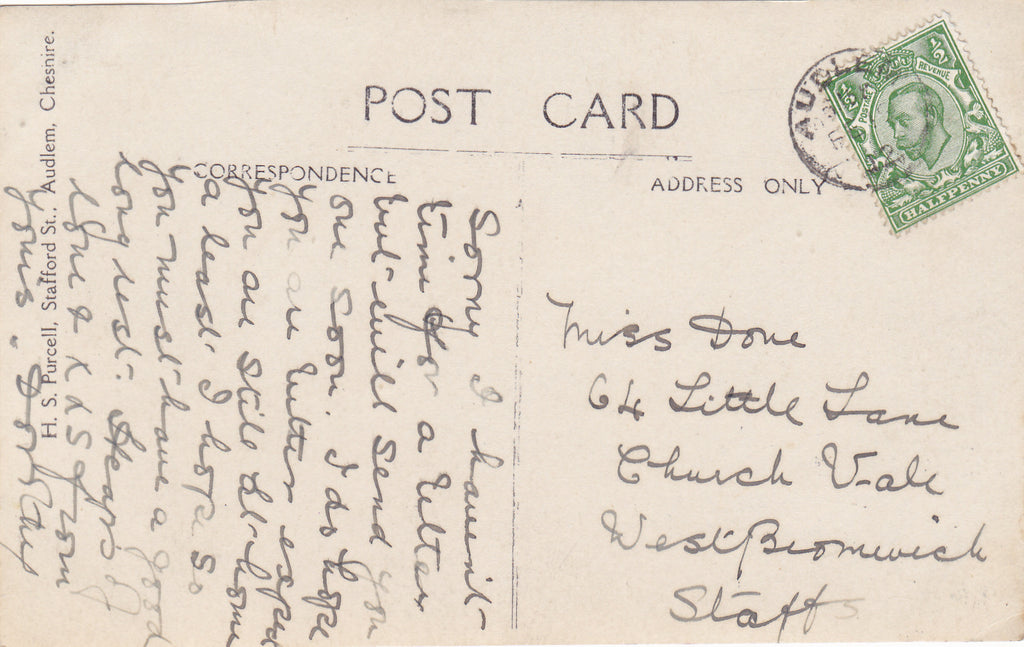 H. S. Purcell, Stafford St., Audlem, Cheshire.
POST CARD
CORRESPONDENCE
ADDRESS ONLY
AUDLE
POSTAGE
REVENUE
1/2
1/2
HALFPENNY
Sorry I havent
time for a letter
but will send you
one soon. I do hope
you are better
you are still at home
a least I hope so
you must have a good
long rest. Heaps of
love & x x s from
yours.
Miss Done
64 Little Lane
Church Vale
West Bromwich
Staffs